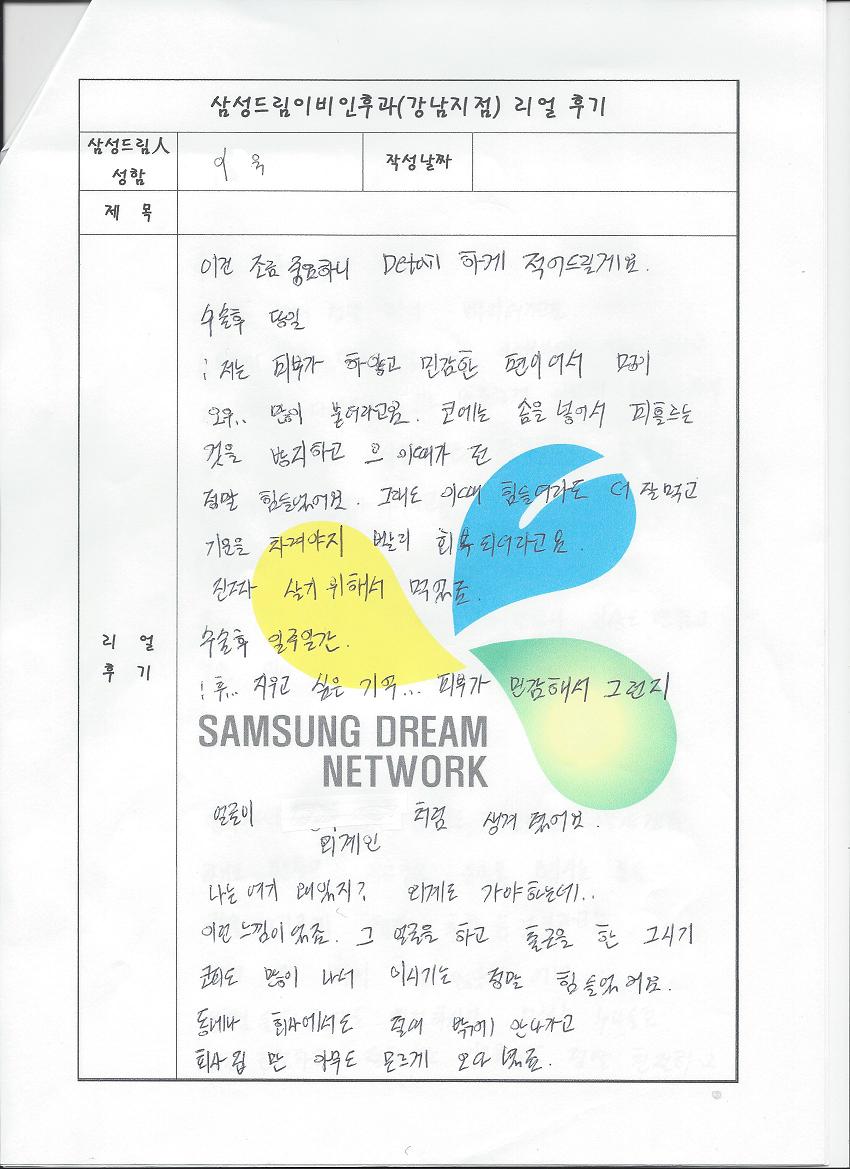 삼성드림이비인후과(강남지점) 리얼 후기
삼성드림人
성함
이 욱
작성날짜
제 목
리 얼
후 기
이건 조금 중요하니 Detail 하게 적어드릴게요.
수술후 당일
: 저는 피부가 하얗고 민감한 편이어서 많이
오우.. 많이 붓더라고요. 코에는 솜을 넣어서 피흘르는
것을 방지하고 으 이때가 전
정말 힘들었어요. 그래도 이때 힘들더라도 더 잘먹고
기운을 차려야지 빨리 회복되더라고요.
진짜 살기 위해서 먹었죠.
수술후 일주일간.
: 후.. 지우고 싶은 기억... 피부가 민감해서 그런지
SAMSUNG DREAM
NETWORK
얼굴이 처럼 생겨 졌어요.
외계인
나는 여기 왜있지? 외계도 가야하는데..
이런 느낌이었죠. 그 얼굴을 하고 출근을 한 그시기
코피도 많이 나서 이시기는 정말 힘들었어요.
동네나 회사에서도 절대 밖에 안나가고
회사 집 만 아무도 모르게 오다 녔죠.